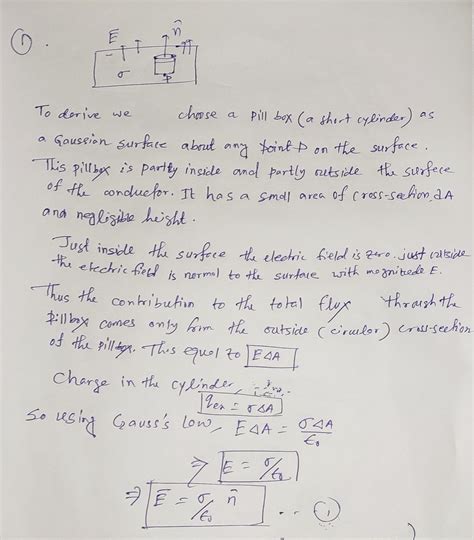 ①.
E̅ n̂
σ
P
To derive we choose a pill box (a short cylinder) as
a Gaussian surface about any point P on the surface.
This pillbox is partly inside and partly outside the surface
of the conductor. It has a small area of cross-section ΔA
and negligible height.
Just inside the surface the electric field is zero. just outside
the electric field is normal to the surface with magnitude E.
Thus the contribution to the total flux through the
pillbox comes only from the outside (circular) cross-section
of the pillbox. This equal to EΔA
Charge in the cylinder,
qen = σΔA
So using Gauss's Law, EΔA = σΔA/ε₀
⇒ E = σ/ε₀
⇒ E̅ = σ/ε₀ n̂ .. ①